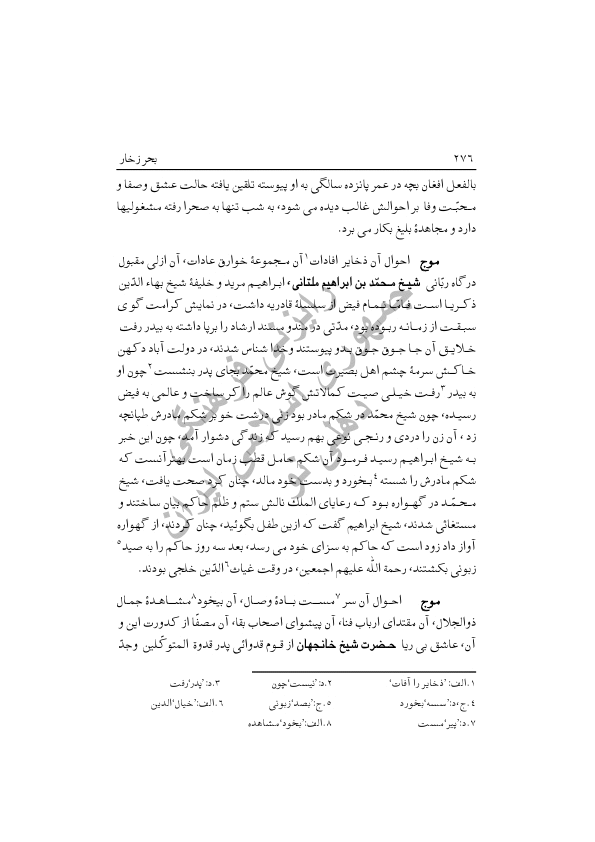 ۲۷۶ بحر زخار
بالفعل افغان بچه در عمر پانزده سالگی به او پیوسته تلقین یافته حالت عشق وصفا و
محبّت وفا بر احوالش غالب دیده می شود، به شب تنها به صحرا رفته مشغولیها
دارد و مجاهدهٔ بلیغ بکار می برد.
موج احوال آن ذخایر افادات۱ آن مجموعهٔ خوارق عادات، آن ازلی مقبول
درگاه ربّانی شیخ محمّد بن ابراهیم ملتانی، ابراهیم مرید و خلیفهٔ شیخ بهاء الدّین
ذکریا است فامّا تمام فیض از سلسلهٔ قادریه داشت، در نمایش کرامت گوی
سبقت از زمانه ربوده بود، مدّتی در مندو مسند ارشاد را برپا داشته به بیدر رفت
خلایق آن جا جوق جوق بدو پیوستند وخدا شناس شدند، در دولت آباد دکهن
خاکش سرمهٔ چشم اهل بصیرت است، شیخ محمّد بجای پدر بنشست۲ چون او
به بیدر۳ رفت خیلی صیت کمالاتش گوش عالم را کر ساخت و عالمی به فیض
رسیده، چون شیخ محمّد در شکم مادر بود زنی درشت خو بر شکم مادرش طپانچه
زد، آن زن را دردی و رنجی نوعی بهم رسید که زندگی دشوار آمد، چون این خبر
به شیخ ابراهیم رسید فرمود آن شکم حامل قطب زمان است بهتر آنست که
شکم مادرش را شسته۴ بخورد و بدست خود مالد، چنان کرد صحت یافت، شیخ
محمّد در گهواره بود که رعایای الملک نالش ستم و ظلم حاکم بیان ساختند و
مستغاثی شدند، شیخ ابراهیم گفت که ازین طفل بگوئید، چنان کردند، از گهواره
آواز داد زود است که حاکم به سزای خود می رسد، بعد سه روز حاکم را به صید۵
زبونی بکشتند، رحمة اللّه علیهم اجمعین، در وقت غیاث۶ الدّین خلجی بودند.
موج احوال آن سر۷ مست بادهٔ وصال، آن بیخود۸ مشاهدهٔ جمال
ذوالجلال، آن مقتدای ارباب فنا، آن پیشوای اصحاب بقا، آن مصفّا از کدورت این و
آن، عاشق بی ریا حضرت شیخ خانجهان از قوم قدوائی پدر قدوة المتوکّلین وجدّ
۱.الف:’ذخایر را آفات‘ ۲.د:’نیست‘چون ۳.د:’پدر‘رفت
۴.ج،د:’سسه‘بخورد ۵.ج:’بصد‘زبونی ۶.الف:’خیال‘الدین
۷.د:’پیر‘مست ۸.الف:’بخود‘مشاهده